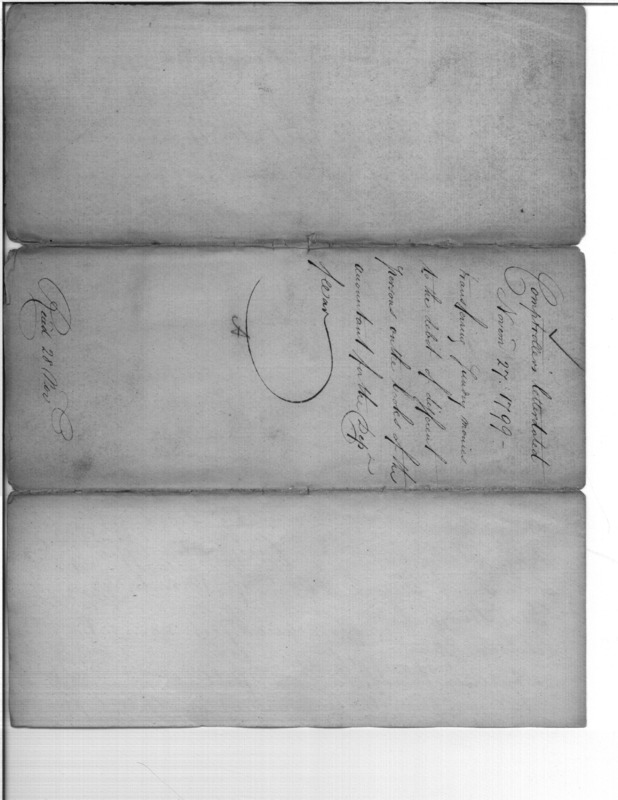 Comptroller's letter dated
Novem.r 27. 1799 -
transferring Sundry monies
to the debit of different
persons on the books of the
accountant for the Dep.t
of war
A
Rec'd 28 Nov